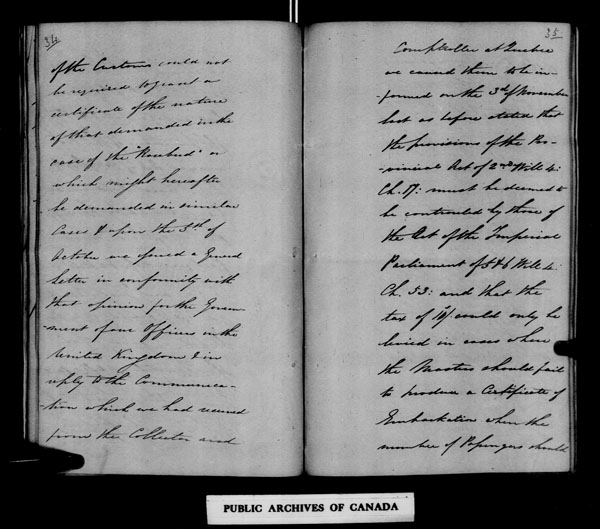 34
of the Customs could not
be required to grant a
certificate of the nature
of that demanded in the
case of the "Rosebud" or
which might hereafter
be demanded in similar
Cases & upon the 5th of
October we issued a General
Letter in conformity with
that opinion for the Govern-
-ment of our Officers in the
United Kingdom & in
reply to the Communica-
-tion which we had received
from the Collector and
35
Comptroller at Quebec
we caused them to be in-
-formed on the 3d of November
last as before stated that
the provisions of the Pro-
-vincial Act of 2nd Will 4:
Ch. 17: must be deemed to
be controuled by those of
the Act of the Imperial
Parliament of 5 & 6 Will 4:
Ch. 53: and that the
tax of 10/ could only be
levied in cases where
the Masters should fail
to produce a Certificate of
Embarkation when the
number of Passengers should
PUBLIC ARCHIVES OF CANADA